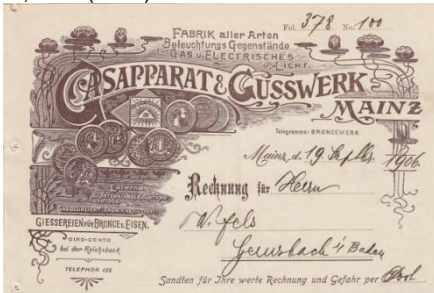 Fol. 378 No. 100
FABRIK aller Arten
Beleuchtungs Gegenstände
GAS u. ELECTRISCHES
LICHT.
GASAPPARAT & GUSSWERK
MAINZ
Telegramme: BRONCEWERK
Mainz, d. 19 Septbr. 1906
Rechnung für Herrn
W. Fels
Gernsbach i/ Baden
GIESSEREIEN FÜR BRONCE U. EISEN.
GIRO-CONTO
bei der Reichsbank
TELEPHON
Sandten für Ihre werte Rechnung und Gefahr per Post